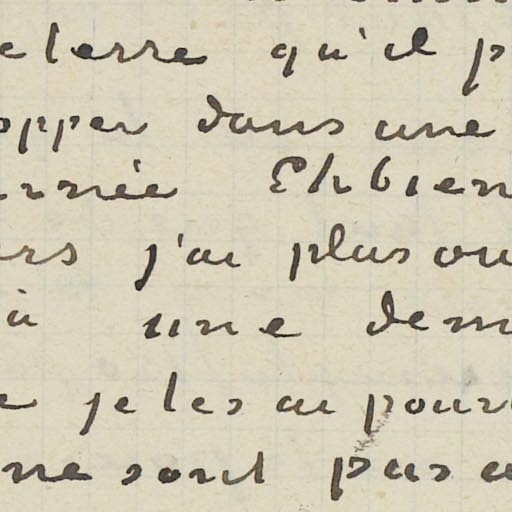 eterre qu'il p
opper dans une
urnée Eh bien
ers j'ai plus ou
à une dem
e je les ai pour
ne sont pas a